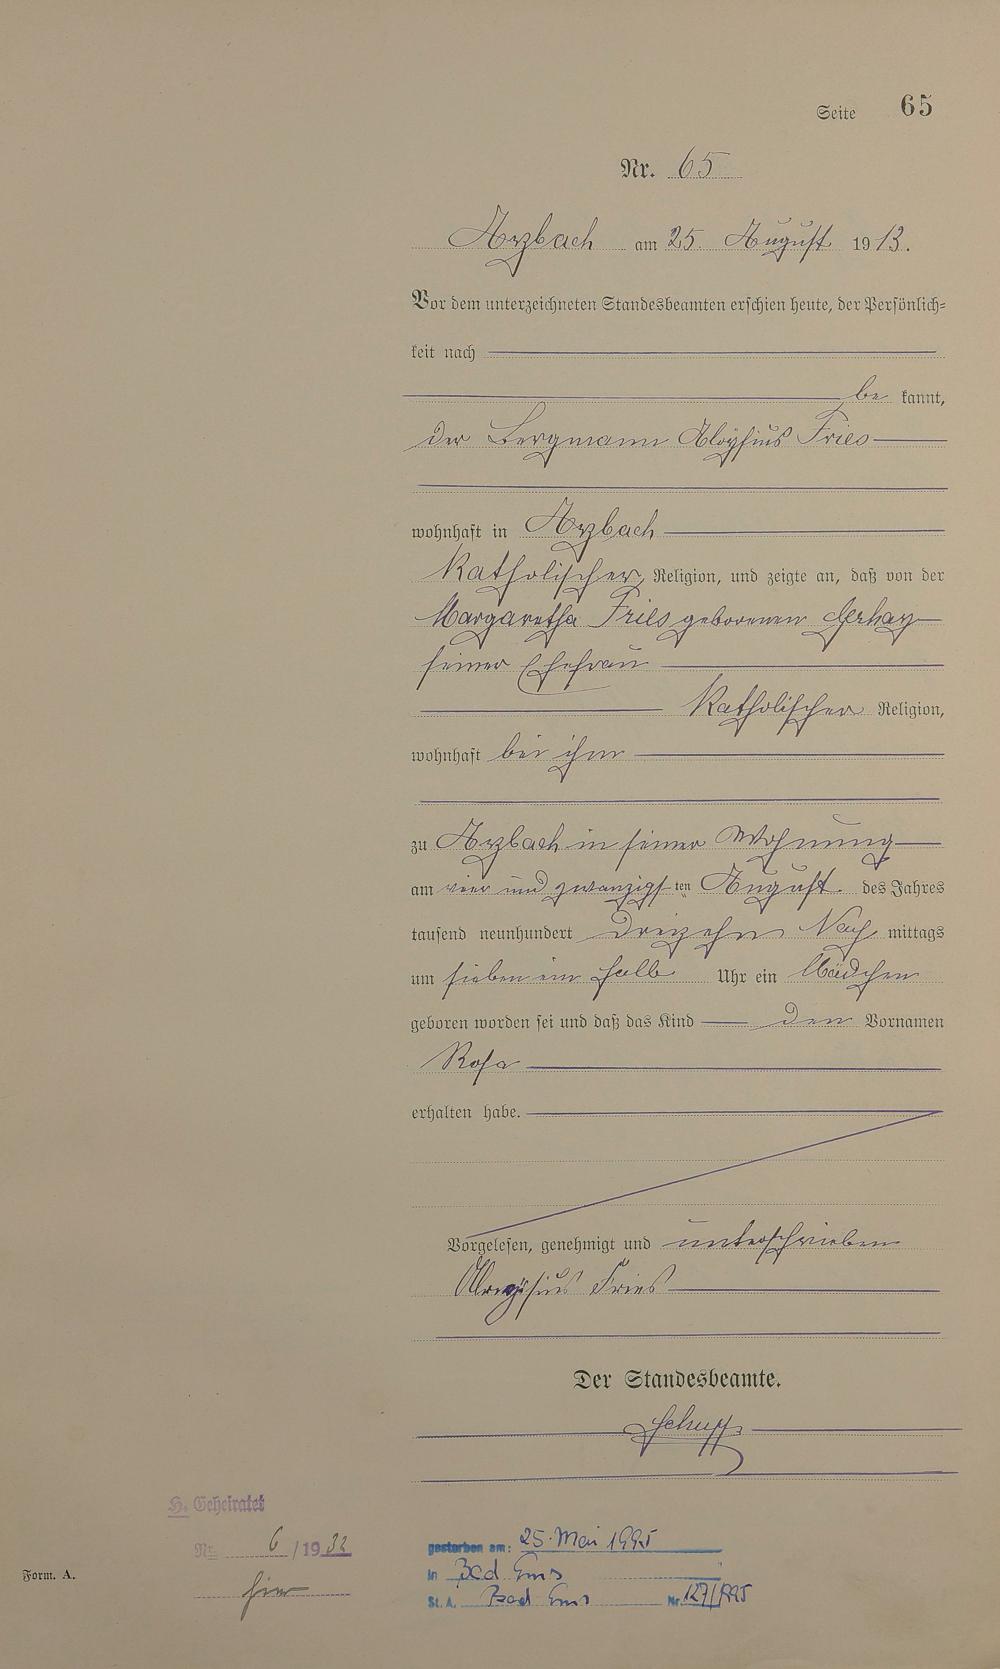 Seite 65
Nr. 65
Arzbach am 25. August 1913.
Vor dem unterzeichneten Standesbeamten erschien heute, der Persönlich=
keit nach
be kannt,
der Bergmann Aloysius Fries
wohnhaft in Arzbach
Katholischer Religion, und zeigte an, daß von der
Margaretha Fries geborenen Gerhay
seiner Ehefrau
Katholischer Religion,
wohnhaft bei ihm
zu Arzbach in seiner Wohnung
am vier und zwanzigsten August des Jahres
tausend neunhundert dreizehn Nach mittags
um sieben ein halb Uhr ein Mädchen
geboren worden sei und daß das Kind den Vornamen
Rosa
erhalten habe.
Vorgelesen, genehmigt und unterschrieben
Aloysius Fries
Der Standesbeamte.
Schupp
H. Geheiratet
Nr. 6/1932
hier
gestorben am: 25. Mai 1995
in Bad Ems
St. A. Bad Ems Nr. 127/1995
Form. A.